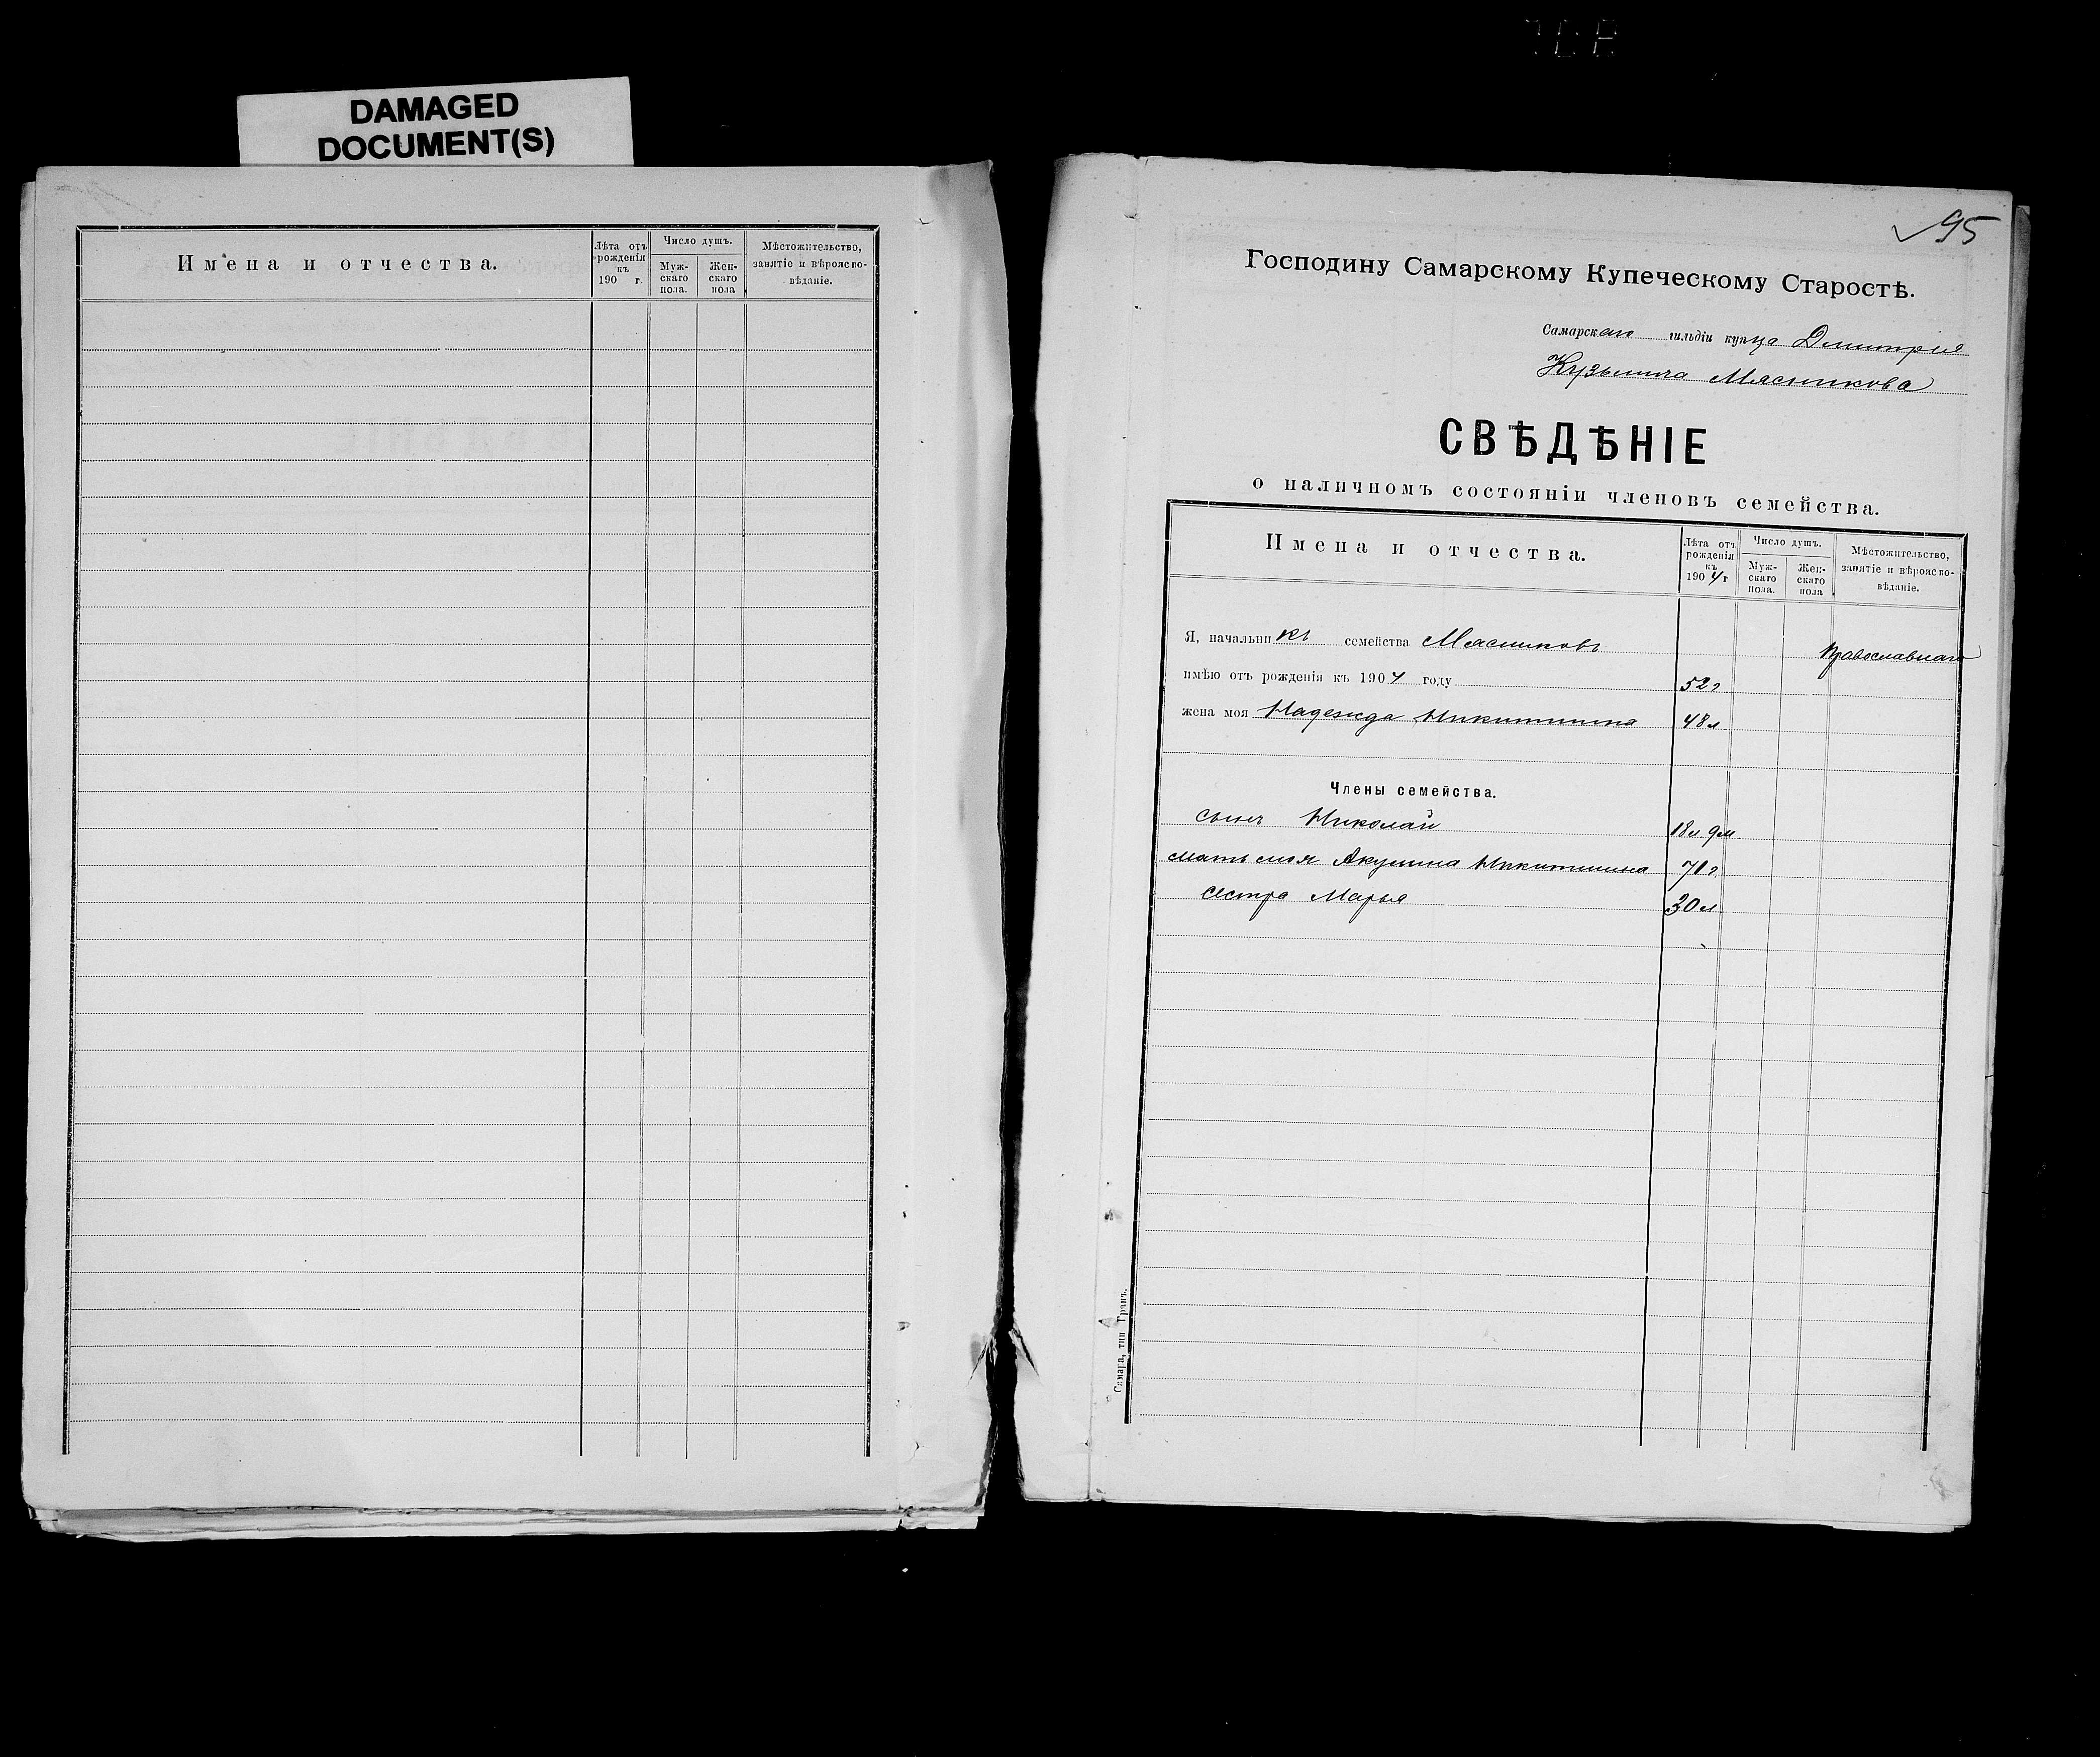 DAMAGED
DOCUMENT(S)
Имена и отчества.
Лѣта отъ рожденія къ 190 г.
Число душъ.
Муж-скаго пола.
Жен-скаго пола
Мѣстожительство, занятіе и вѣроиспо-вѣданіе.
95
Господину Самарскому Купеческому Старостѣ.
Самарскаго гильдіи купца Димитрія
Кузьмича Мясникова
СВѢДѢНІЕ
о наличномъ состояніи членовъ семейства.
Имена и отчества.
Лѣта отъ рожденія къ 1904 г
Число душъ.
Муж-скаго пола.
Жен-скаго пола
Мѣстожительство, занятіе и вѣроиспо-вѣданіе.
Я, начальникъ семейства Мясниковъ Православнаго
имѣю отъ рожденія къ 1904 году 52 г
жена моя Надежда Никитишна 48 л
Члены семейства.
сынъ Николай 18 л 9 м
мать моя Акулина Никитишна 71 г
сестра Марья 30 л
Самара, тип. Гранъ.